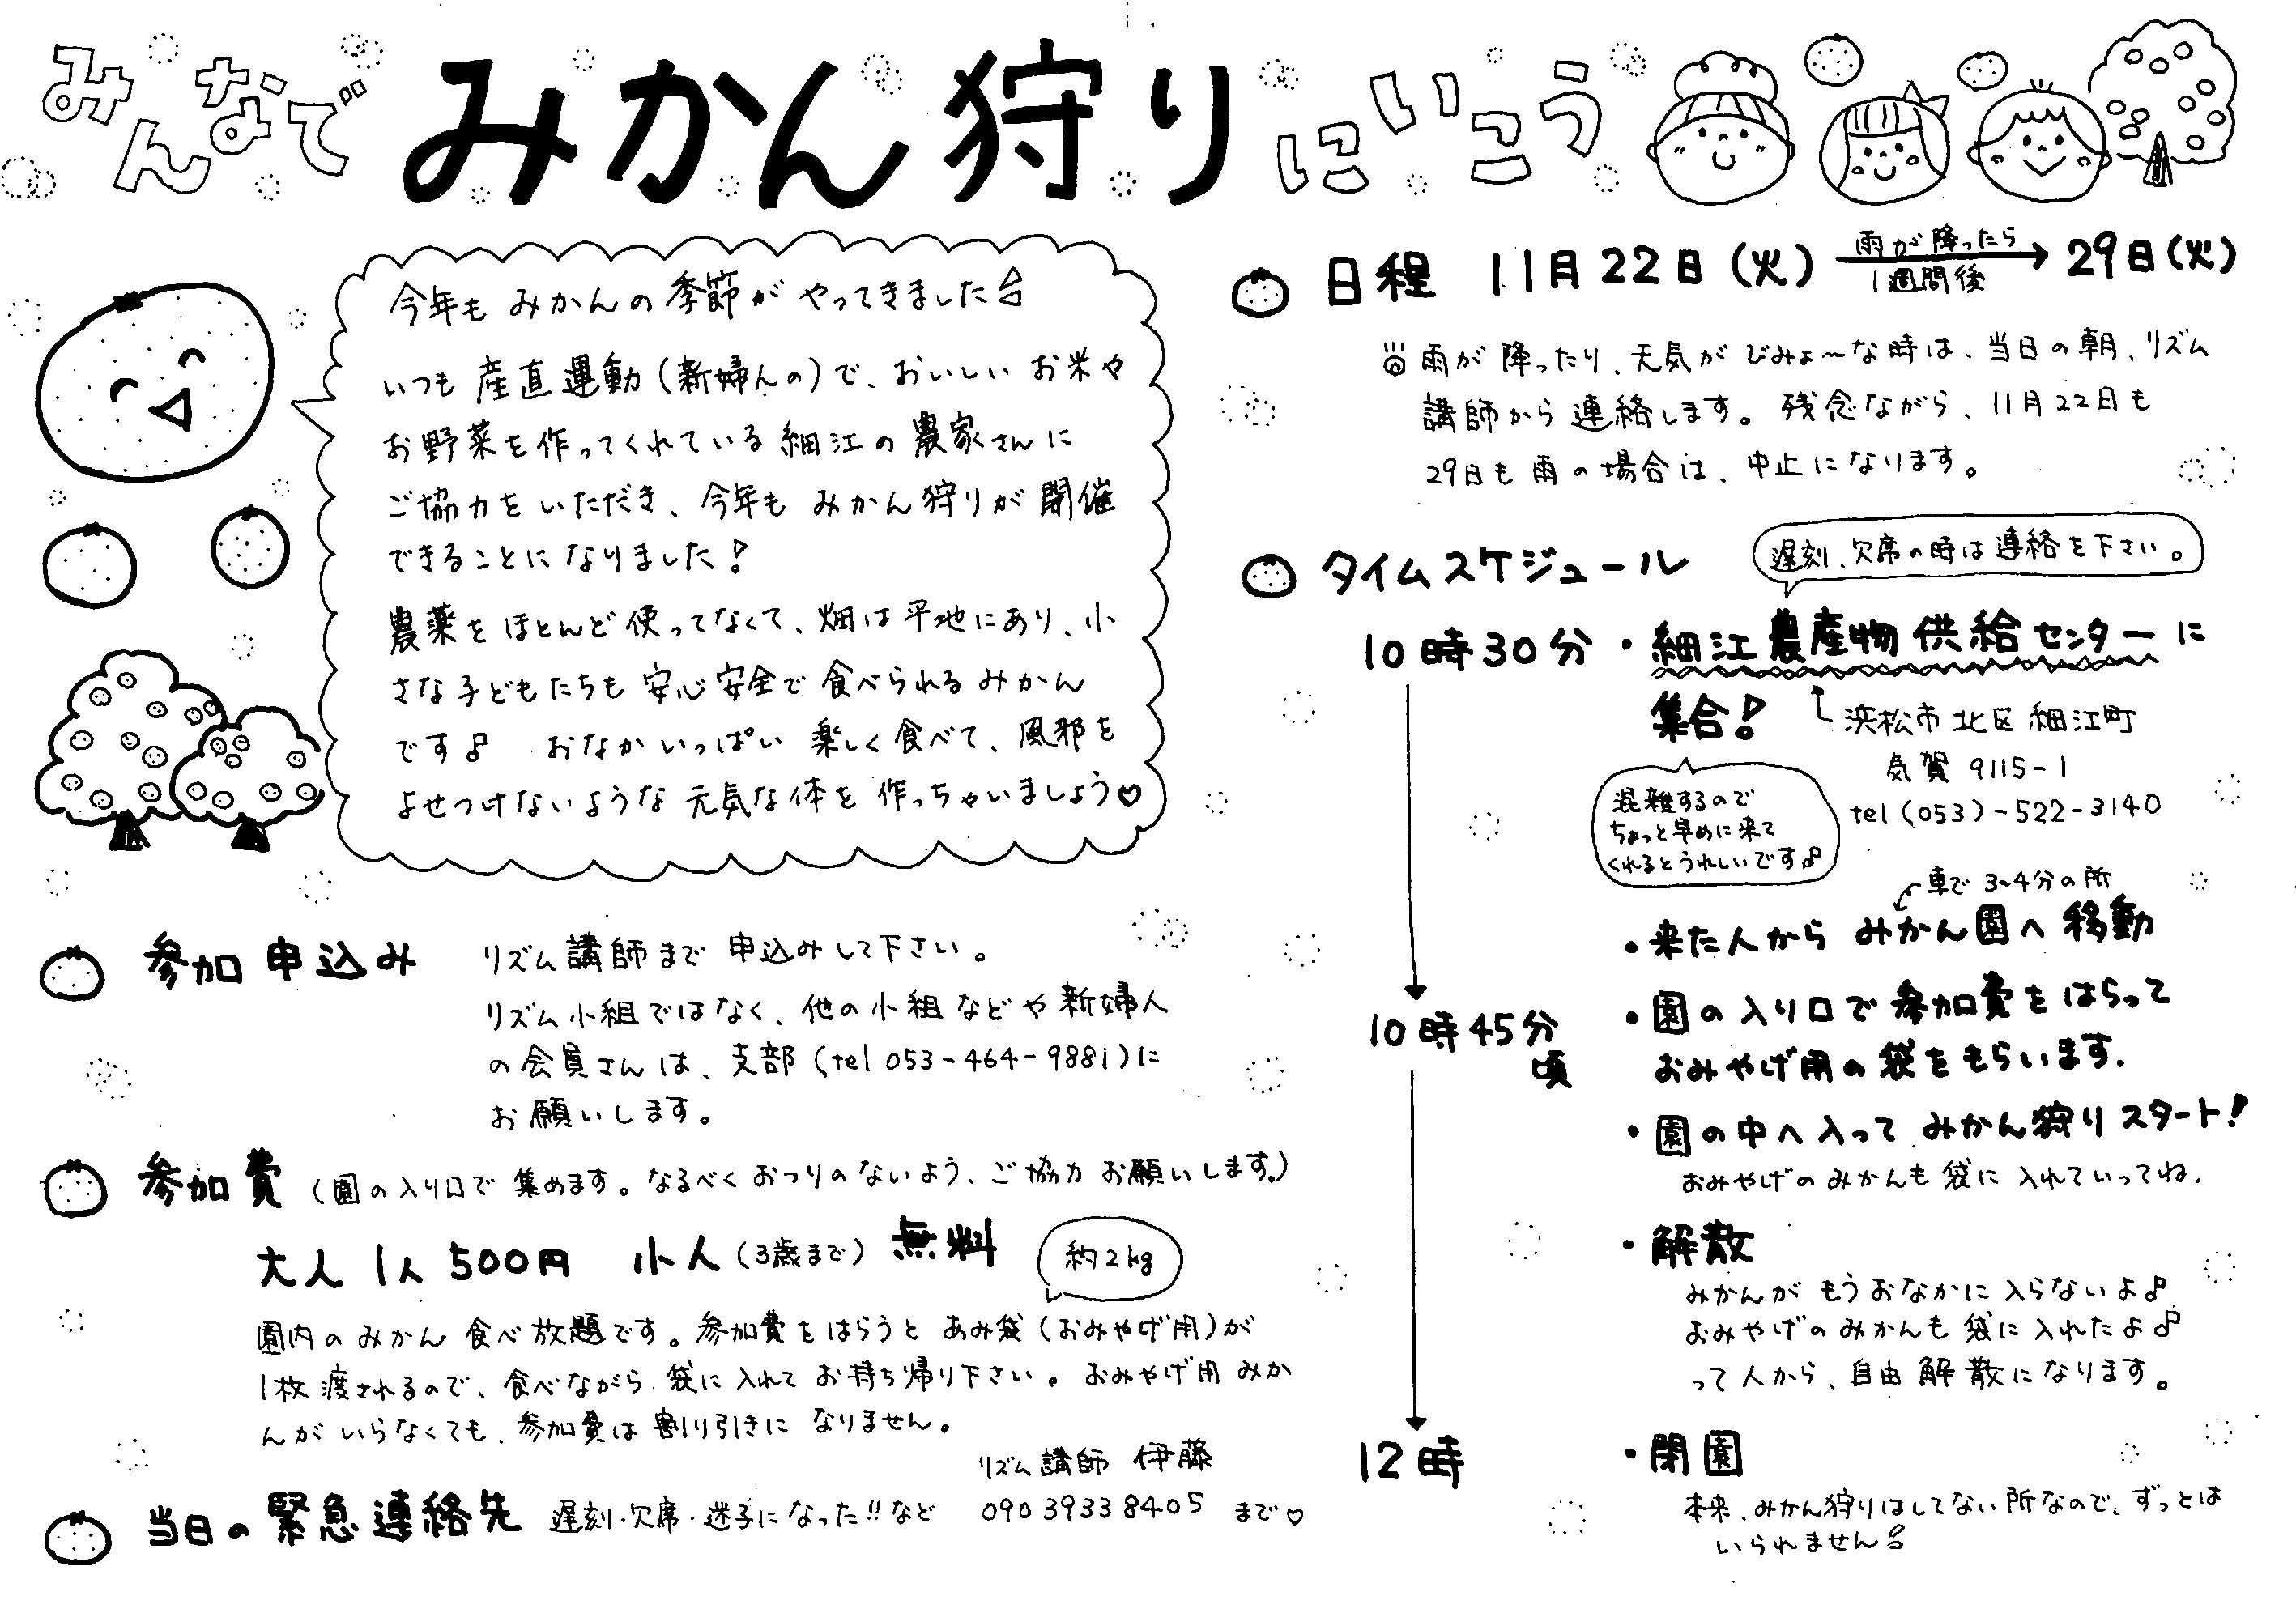 みんなで みかん狩り にいこう
今年も みかんの季節が やってきました
いつも 産直運動(新婦人の)で、おいしい お米や
お野菜を作ってくれている 細江の農家さんに
ご協力をいただき、今年も みかん狩りが開催
できることに なりました!
農薬をほとんど使ってなくて、畑は平地にあり、小
さな子どもたちも 安心安全で食べられるみかん
です♪ おなかいっぱい 楽しく食べて、風邪を
よせつけないような 元気な体を 作っちゃいましょう♡
参加申込み リズム講師まで 申込みして下さい。
リズム小組ではなく、他の小組などや新婦人
の会員さんは、支部(tel 053-464-9881)に
お願いします。
参加費 (園の入り口で 集めます。なるべく おつりのないよう、ご協力 お願いします。)
大人 1人 500円 小人(3歳まで) 無料
約2kg
園内の みかん 食べ放題です。参加費をはらうと あみ袋(おみやげ用)が
1枚渡されるので、食べながら 袋に入れて お持ち帰り下さい。おみやげ用 みか
んが いらなくても、参加費は 割り引きに なりません。
当日の緊急連絡先 遅刻・欠席・迷子になった!!など
リズム講師 伊藤
090 3933 8405 まで♡
日程 11月22日(火) 雨が降ったら 1週間後 → 29日(火)
雨が降ったり、天気が びみょ〜な時は、当日の朝、リズム
講師から 連絡します。残念ながら、11月22日も
29日も 雨の場合は、中止になります。
タイムスケジュール
遅刻、欠席の時は連絡を下さい。
10時30分 ・細江農産物供給センターに
集合!
浜松市北区細江町
気賀 9115-1
tel (053)-522-3140
混雑するので
ちょっと早めに来て
くれるとうれしいです♪
車で 3〜4分の所
・来た人から みかん園へ 移動
10時45分頃
・園の入り口で 参加費を はらって
おみやげ用の袋をもらいます.
・園の中へ入って みかん狩り スタート!
おみやげの みかんも 袋に 入れていってね.
・解散
みかんが もうおなかに 入らないよ♪
おみやげの みかんも 袋に 入れたよ♪
って人から、自由解散になります。
12時 ・閉園
本来、みかん狩りはしてない所なので、ずっとは
いられません